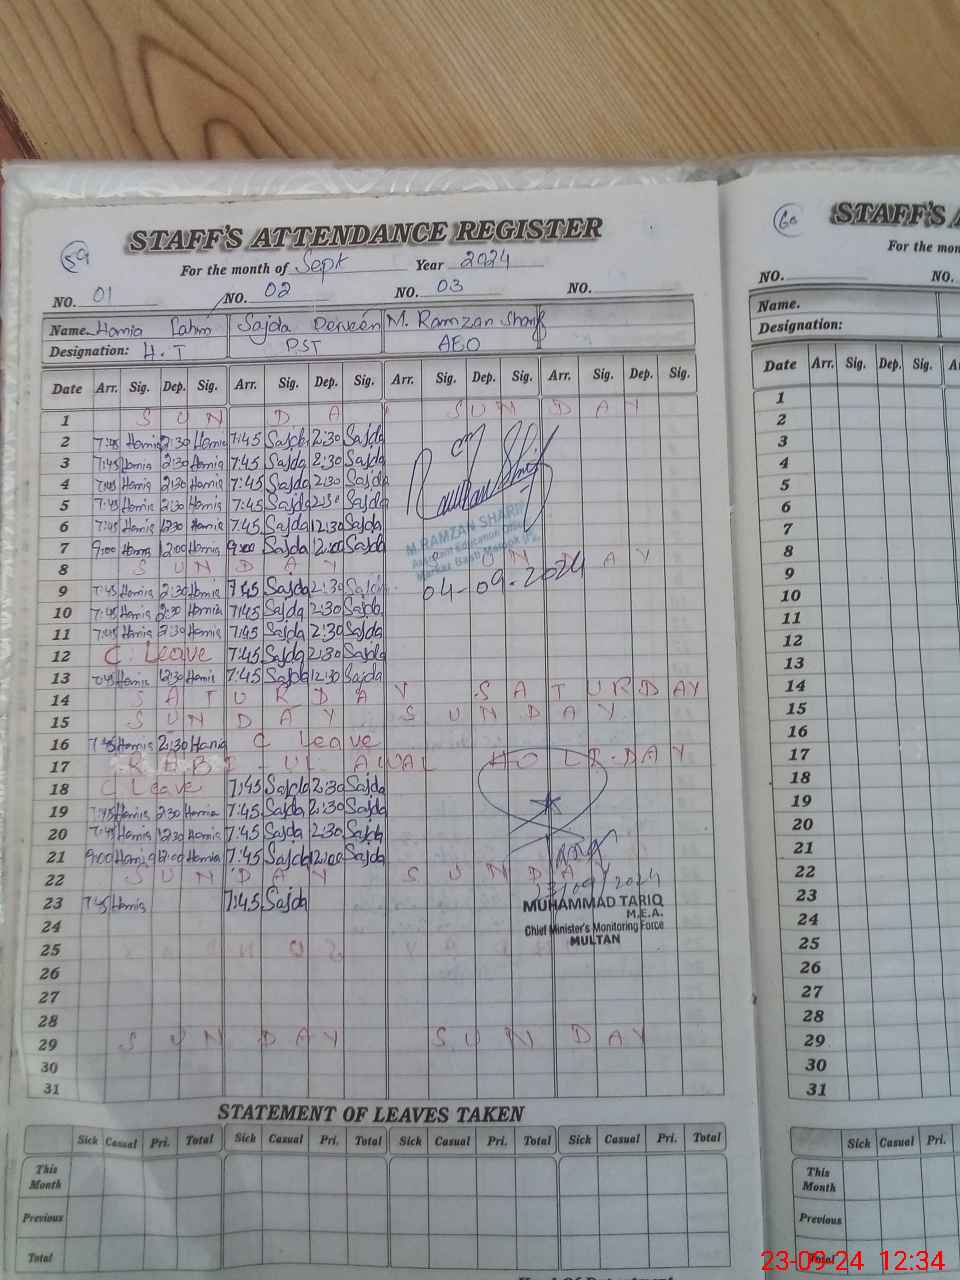 59 STAFF'S ATTENDANCE REGISTER
For the month of Sept Year 2024
NO. 01 NO. 02 NO. 03 NO.
Name. Hamia Sajda Perveen M. Ramzan Sharif
Designation: H.T PST AEO
Date Arr. Sig. Dep. Sig. Arr. Sig. Dep. Sig. Arr. Sig. Dep. Sig. Arr. Sig. Dep. Sig.
1 S U N D A S U N D A Y
2 7:45 Hamia 2:30 Hamia 7:45 Sajda 2:30 Sajda
3 7:45 Hamia 2:30 Hamia 7:45 Sajda 2:30 Sajda
4 7:45 Hamia 2:30 Hamia 7:45 Sajda 2:30 Sajda
5 7:45 Hamia 2:30 Hamia 7:45 Sajda 2:30 Sajda
6 7:45 Hamia 12:30 Hamia 7:45 Sajda 12:30 Sajda
7 9:00 Hamia 12:00 Hamia 9:00 Sajda 12:00 Sajda
M. RAMZAN SHARIF
Assistant Education Officer
8 S U N D A Y S U N D A Y
04-09-2024
9 7:45 Hamia 2:30 Hamia 7:45 Sajda 2:30 Sajda
10 7:45 Hamia 2:30 Hamia 7:45 Sajda 2:30 Sajda
11 7:45 Hamia 2:30 Hamia 7:45 Sajda 2:30 Sajda
12 C. Leave 7:45 Sajda 2:30 Sajda
13 7:45 Hamia 12:30 Hamia 7:45 Sajda 12:30 Sajda
14 S A T U R D A Y S A T U R D A Y
15 S U N D A Y S U N D A Y
16 7:45 Hamia 2:30 Hamia C Leave
17 R A B I - U L A W A L H O L I - D A Y
18 C Leave 7:45 Sajda 2:30 Sajda
19 7:45 Hamia 2:30 Hamia 7:45 Sajda 2:30 Sajda
20 7:45 Hamia 12:30 Hamia 7:45 Sajda 2:30 Sajda
21 9:00 Hamia 12:00 Hamia 7:45 Sajda 12:00 Sajda
22 S U N D A Y S U N D A Y
23 7:45 Hamia 7:45 Sajda
MUHAMMAD TARIQ
M.E.A.
Chief Minister's Monitoring Force
MULTAN
24
25
26
27
28
29 S U N D A Y S U N D A Y
30
31
STATEMENT OF LEAVES TAKEN
Sick Casual Pri. Total Sick Casual Pri. Total Sick Casual Pri. Total Sick Casual Pri. Total
This Month
Previous
Total
60 STAFF'S A
For the mon
NO. NO.
Name.
Designation:
Date Arr. Sig. Dep. Sig.
1
2
3
4
5
6
7
8
9
10
11
12
13
14
15
16
17
18
19
20
21
22
23
24
25
26
27
28
29
30
31
Sick Casual Pri.
This Month
Previous
Total
23-09-24 12:34